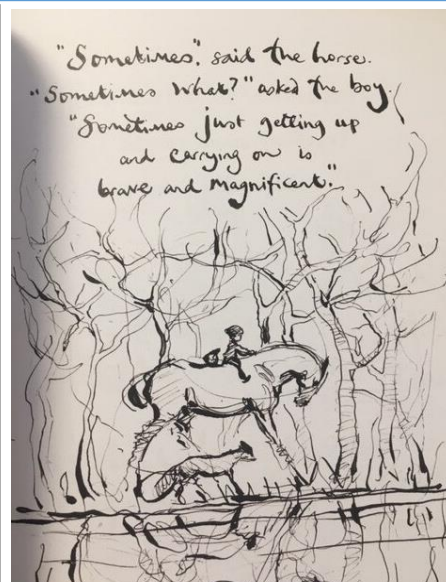 "Sometimes", said the horse.
"Sometimes What?" asked the boy.
"Sometimes just getting up
and carrying on is
brave and magnificent."